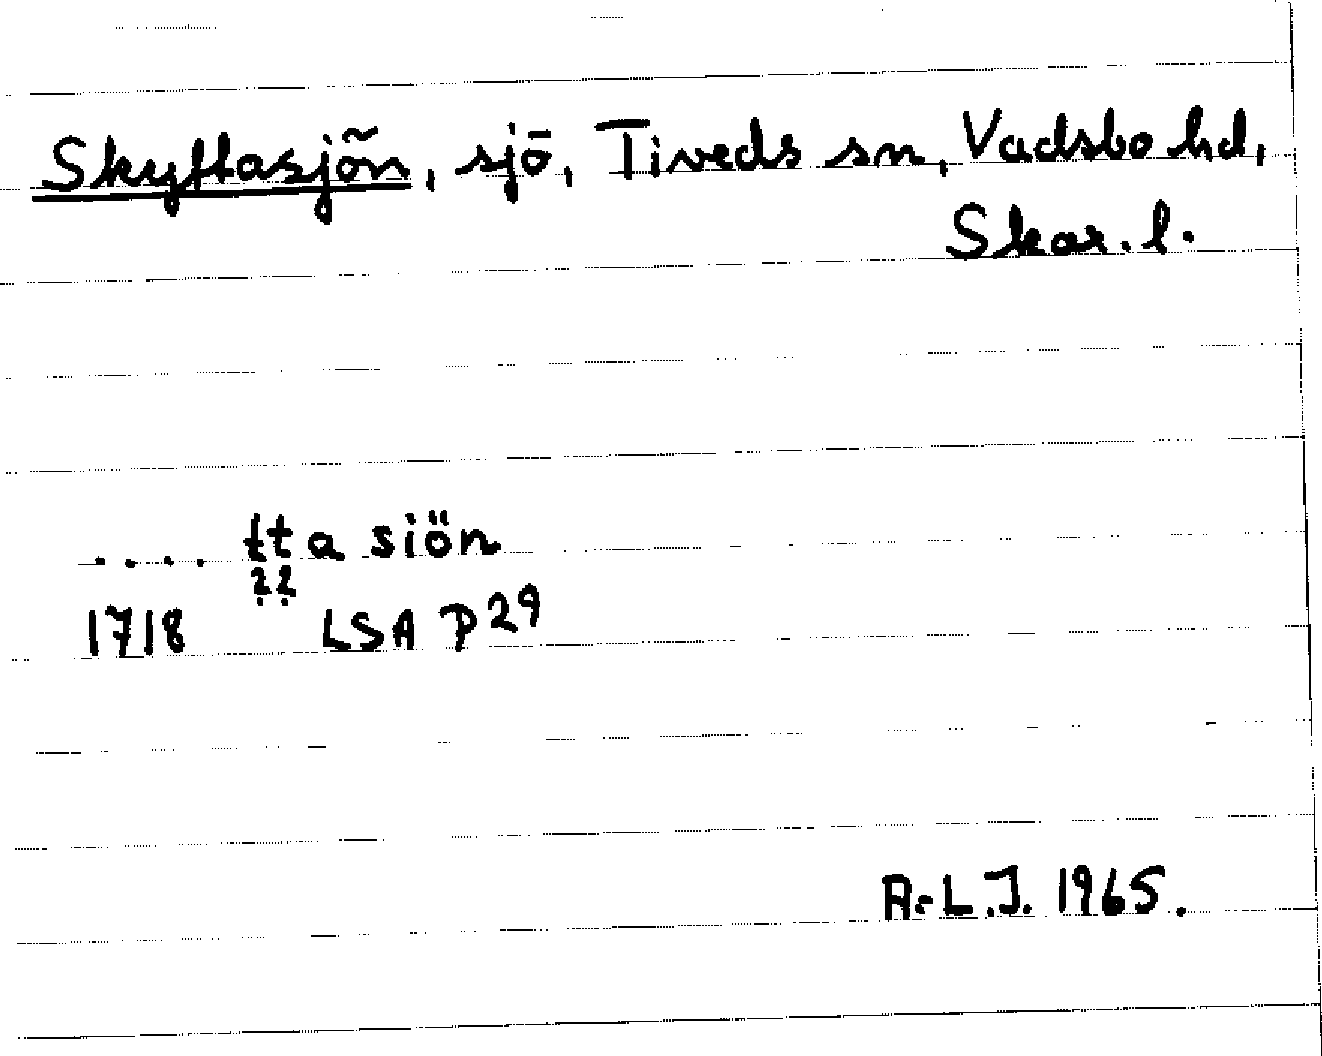 Skyttasjön, sjö, Tiveds sn, Vadsbo hd,
Skar. l.
.... tta siön
??
1718 LSA P29
A-L.J. 1965.